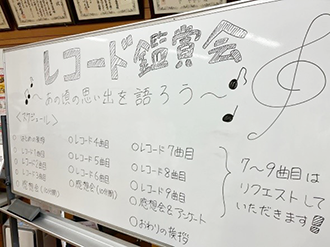 レコード鑑賞会
～あの頃の思い出を語ろう～
＜スケジュール＞
○はじめの挨拶
○レコード1曲目
○レコード2曲目
○レコード3曲目
○感想会(10分間)
○レコード4曲目
○レコード5曲目
○レコード6曲目
○感想会(10分間)
○レコード7曲目
○レコード8曲目
○レコード9曲目
○感想会&アンケート
○おわりの挨拶
7～9曲目は
リクエストして
いただきます!!